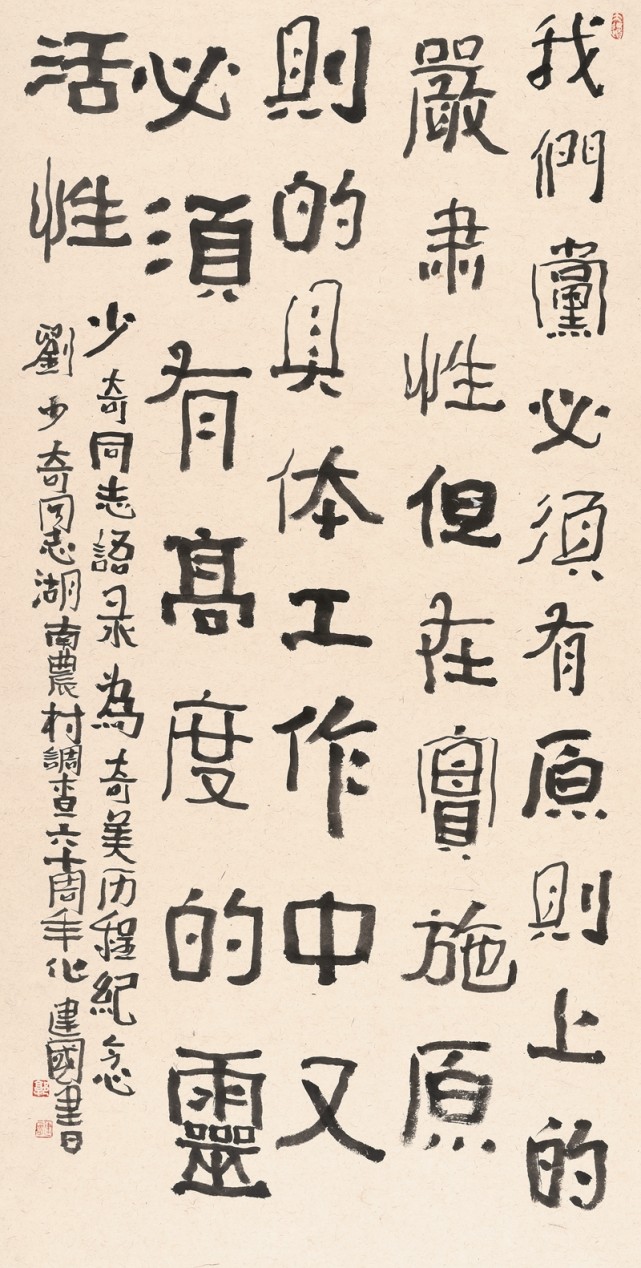 我們黨必須有原則上的
嚴肅性但在實施原
則的具体工作中又
必須有高度的靈
活性
少奇同志語录為奇美历程紀念
劉少奇同志湖南農村調查六十周年作 建國書